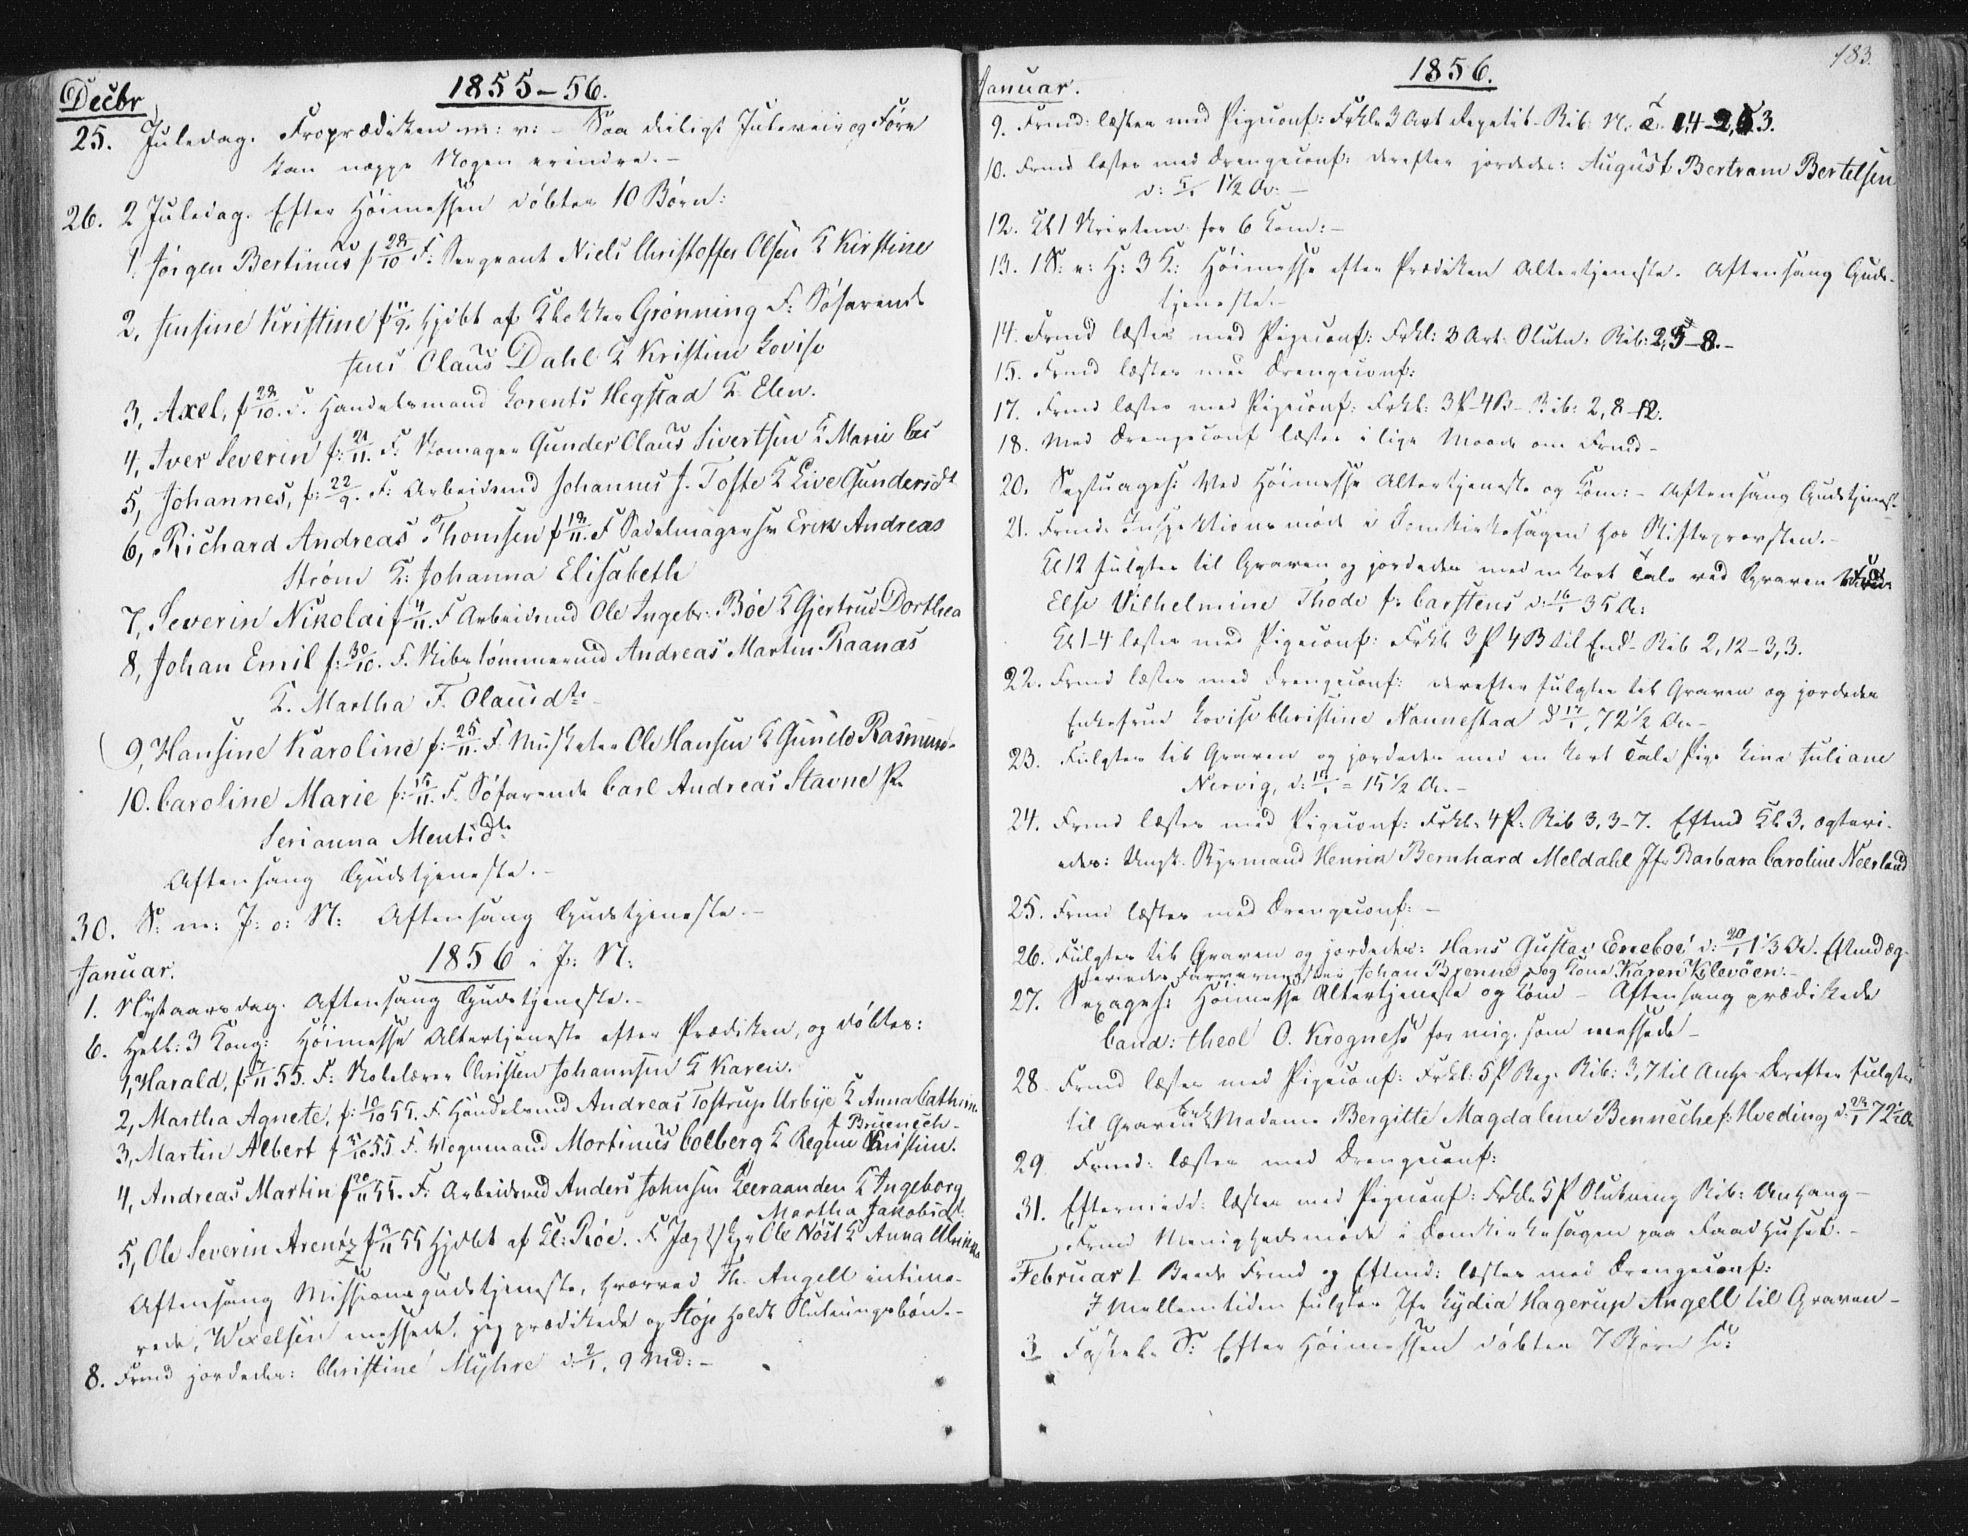 Decbr 1855–56.
25. Juledag. Froprædiken m: v: – Saa deiligt Juleveir og Føre
kan neppe Nogen erindre. –
26. 2 Juledag. Efter Høimessen døbtes 10 Børn:
1. Jørgen Bertinus f 28/10 F: Sergeant Niels Christoffer Olsen & Kirstine
2, Jensine Kristine f 11/9. hjdbt af Klokker Grønning F: Søfarende
Jens Claus Dahl & Kristine Lovise
3, Axel, f 28/10. F. Handelsmand Lorents Hegstad & Elen.
4, Iver Severin f: 21/11. F. Skomager Gunder Claus Sivertsen & Marie
5, Johannes, f: 22/9. F: Arbeidsmd Johannes J. Tofte & Live Gundersdt
6, Richard Andreas Thomsen f 18/11. F Sadelmagersv Erik Andreas
Strøm & Johanna Elisabeth
7, Severin Nikolai f 4/11. F Arbeidsmd Ole Ingebr. Bøe & Gjertrud Dorthea
8, Johan Emil f: 30/10. F. Skibstømmermd Andreas Martin Raanæs
& Martha F. Olausdtr
9, Hansine Karoline f: 25/11. F. Musketer Ole Hansen & Gunild Rasmus-
10. Caroline Marie f: 15/11. F. Søfarende Carl Andreas Stavne
Serianna Mentsdtr
Aftensang Gudstjeneste. –
30. S: m: J: o: N: Aftensang Gudstjeneste. –
Januar. 1856 i J: N:
1. Nytaarsdag. Aftensang Gudstjeneste. –
6. Hell: 3 Kong: Høimesse Altertjeneste efter Prædiken, og døbtes:
1, Harald, f: 7/11 55. F: Skolelærer Christen Johannsen & Karen.
2, Martha Agnete, f: 10/10 55. F. Handelsmd Andreas Tostrup Urbye & Anna Cathrin
f Bruenech–
3, Martin Albert f 5/10 55 F. Vognmand Mortinus Colberg & Regine Kristine.
4, Andreas Martin f 20/11 55. F: Arbeidsmd Anders Johnsen Leeraanden & Ingeborg
Martha Jakobsdt:
5, Ole Severin Arentz f 9/11 55 hjdbt af Kl: Røe. F. Jægtskpr Ole Nøst & Anna
Aftensang Missionsgudstjeneste, hvorved Th. Angell intime-
rede, Wexelsen messede, jeg prædikede og Støp holdt Slutningsbøn. –
8. Frmd jordedes: Christine Myhre d: 2/1. 9 Md: –
1856. 183.
Januar.
9. Frmd: læstes med Pigeconf: Frkl: 3 Art Repetit– Bib. N. T. 1,4–2,5.
10. Frmd læstes med Drengeconf: derefter jordedes: August Bertram Bertelsen
d: 5/1 1½ Ar: –
12. Kl 1 Skrivtem: for 6 Com: –
13. 1 S: e: H: 3 K: Høimesse efter Prædiken Altertjeneste. Aftensang Guds-
tjeneste. –
14. Frmd læstes med Pigeconf: Frkl: 3 Art: Slutn: Bib: 2,5–8. –
15. Frmd læstes med Drengeconf:
17. Frmd læstes med Pigeconf: Frkl: 3 P– 4 B– Bib: 2,8–12.
18. Med Drengeconf læstes i lige Maade om Frmd –
20. Septuages: Ved Høimesse Altertjeneste og Com: – Aftensang Gudstjenest
21. Frmd. Inspektionsmøde i Domkirkesagen hos Stiftsprovsten. –
Kl 12 fulgtes til Graven og jordedes med en kort Tale ved Graven
Else Vilhelmine Thode f: Carstens d: 16/1 35 A:
Kl 1–4 læstes med Pigeconf: Frkl 3 P 4 B til End– Bib 2,12–3,3.
22. Frmd læstes med Drengeconf: derefter fulgtes til Graven og jordedes
Enkefrue Lovise Christine Nannestad d 17/1, 72½ Ar –
23. Fulgtes til Graven og jordedes med en kort Tale Pige Line Juliane
Nervig, d: 17/1 = 15½ Ar. –
24. Frmd læstes med Pigeconf: Frkl: 4 P: Bib 3,3–7. Eftmd Kl 3, egtevi-
edes: Ungk. Styrmand Henrik Bernhard Meldahl Jfr Barbara Caroline Neerland
25. Frmd læstes med Drengeconf: –
26. Fulgtes til Graven og jordedes: Hans Gustav Eneboe d: 20/1 1⅓ Ar. Eftmd æg-
teviedes Farversvend Johan Brenne og Kone Karen Klevöen: –
27. Sexages: Høimesse Altertjeneste og Com – Aftensang prædikede
Cand: theol O. Krogness for mig, som messede –
28. Frmd læstes med Pigeconf: Frkl: 5 P Beg. Bib: 3,7 til Anh. Derefter fulgtes
til Graven Enk Madame Bergitte Magdalene Bennecke f: Hveding d: 23/1 72½ Ar
29. Frmd: læstes med Drengeconf:
31. Eftermidd: læstes med Pigeconf: Frkl: 5 P Slutning Bib: Anhang –
Frmd Menighedsmøde i Domkirkesagen paa Raadhuset. –
Februar 1 Baade Frmd og Eftmd: læstes med Drengeconf:
I Mellemtiden fulgtes Jfr Lydia Hagerup Angell til Graven –
3 Fastel. S: Efter Høimessen døbtes 7 Børn so: